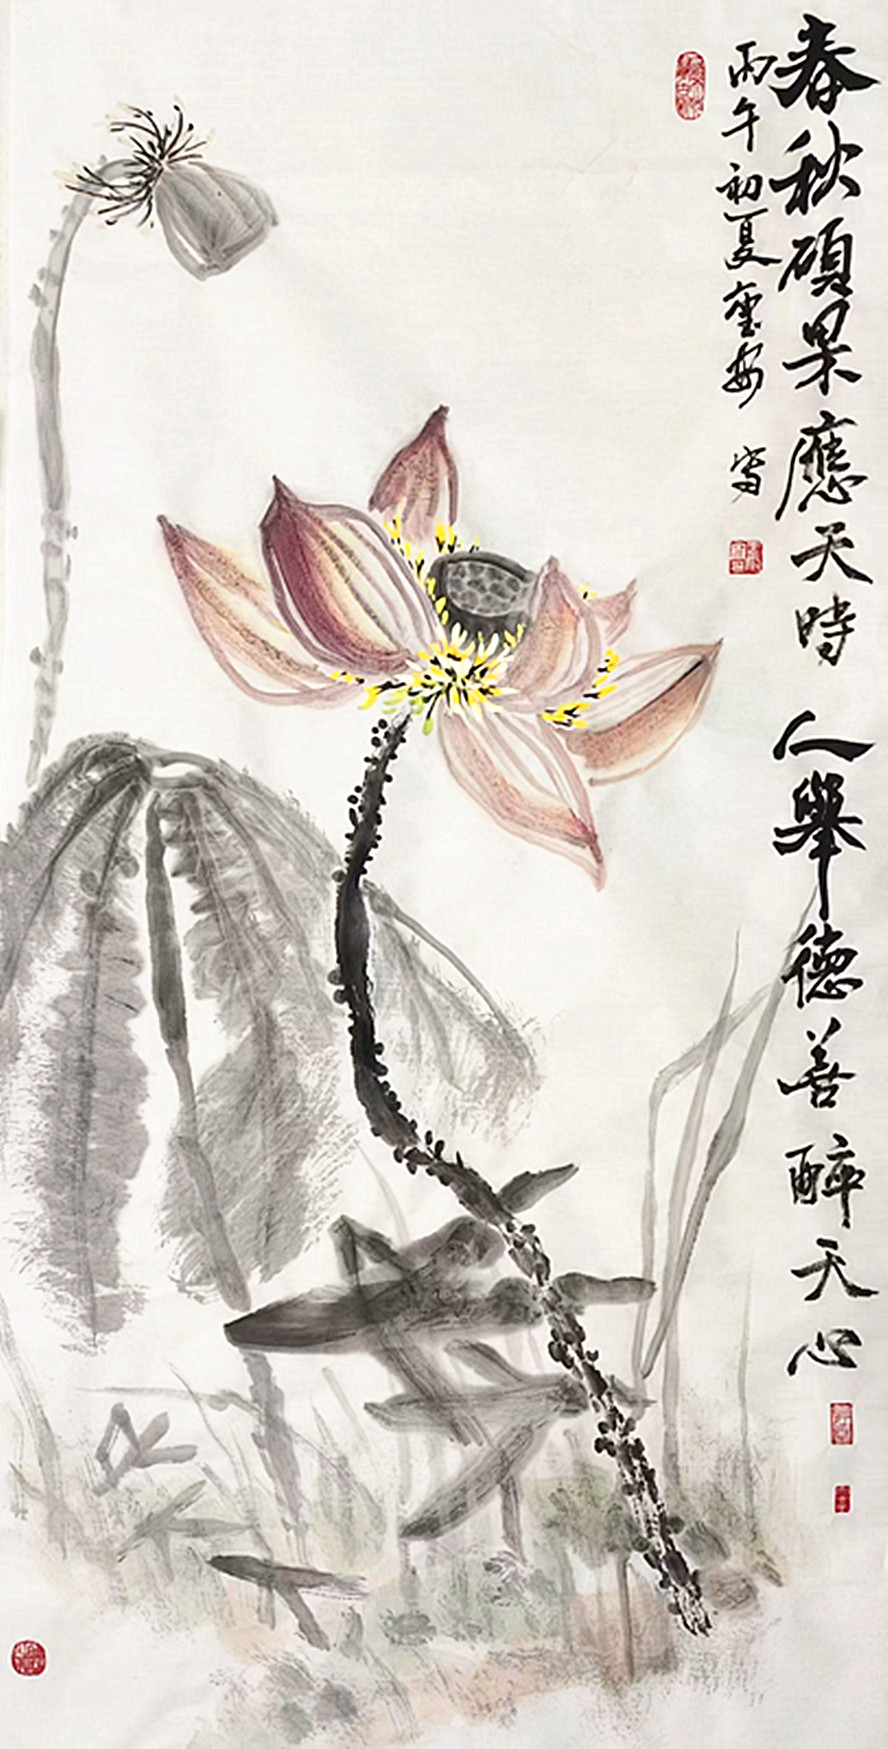 春秋碩果應天時 人舉德善醉天心
丙午初夏 寫